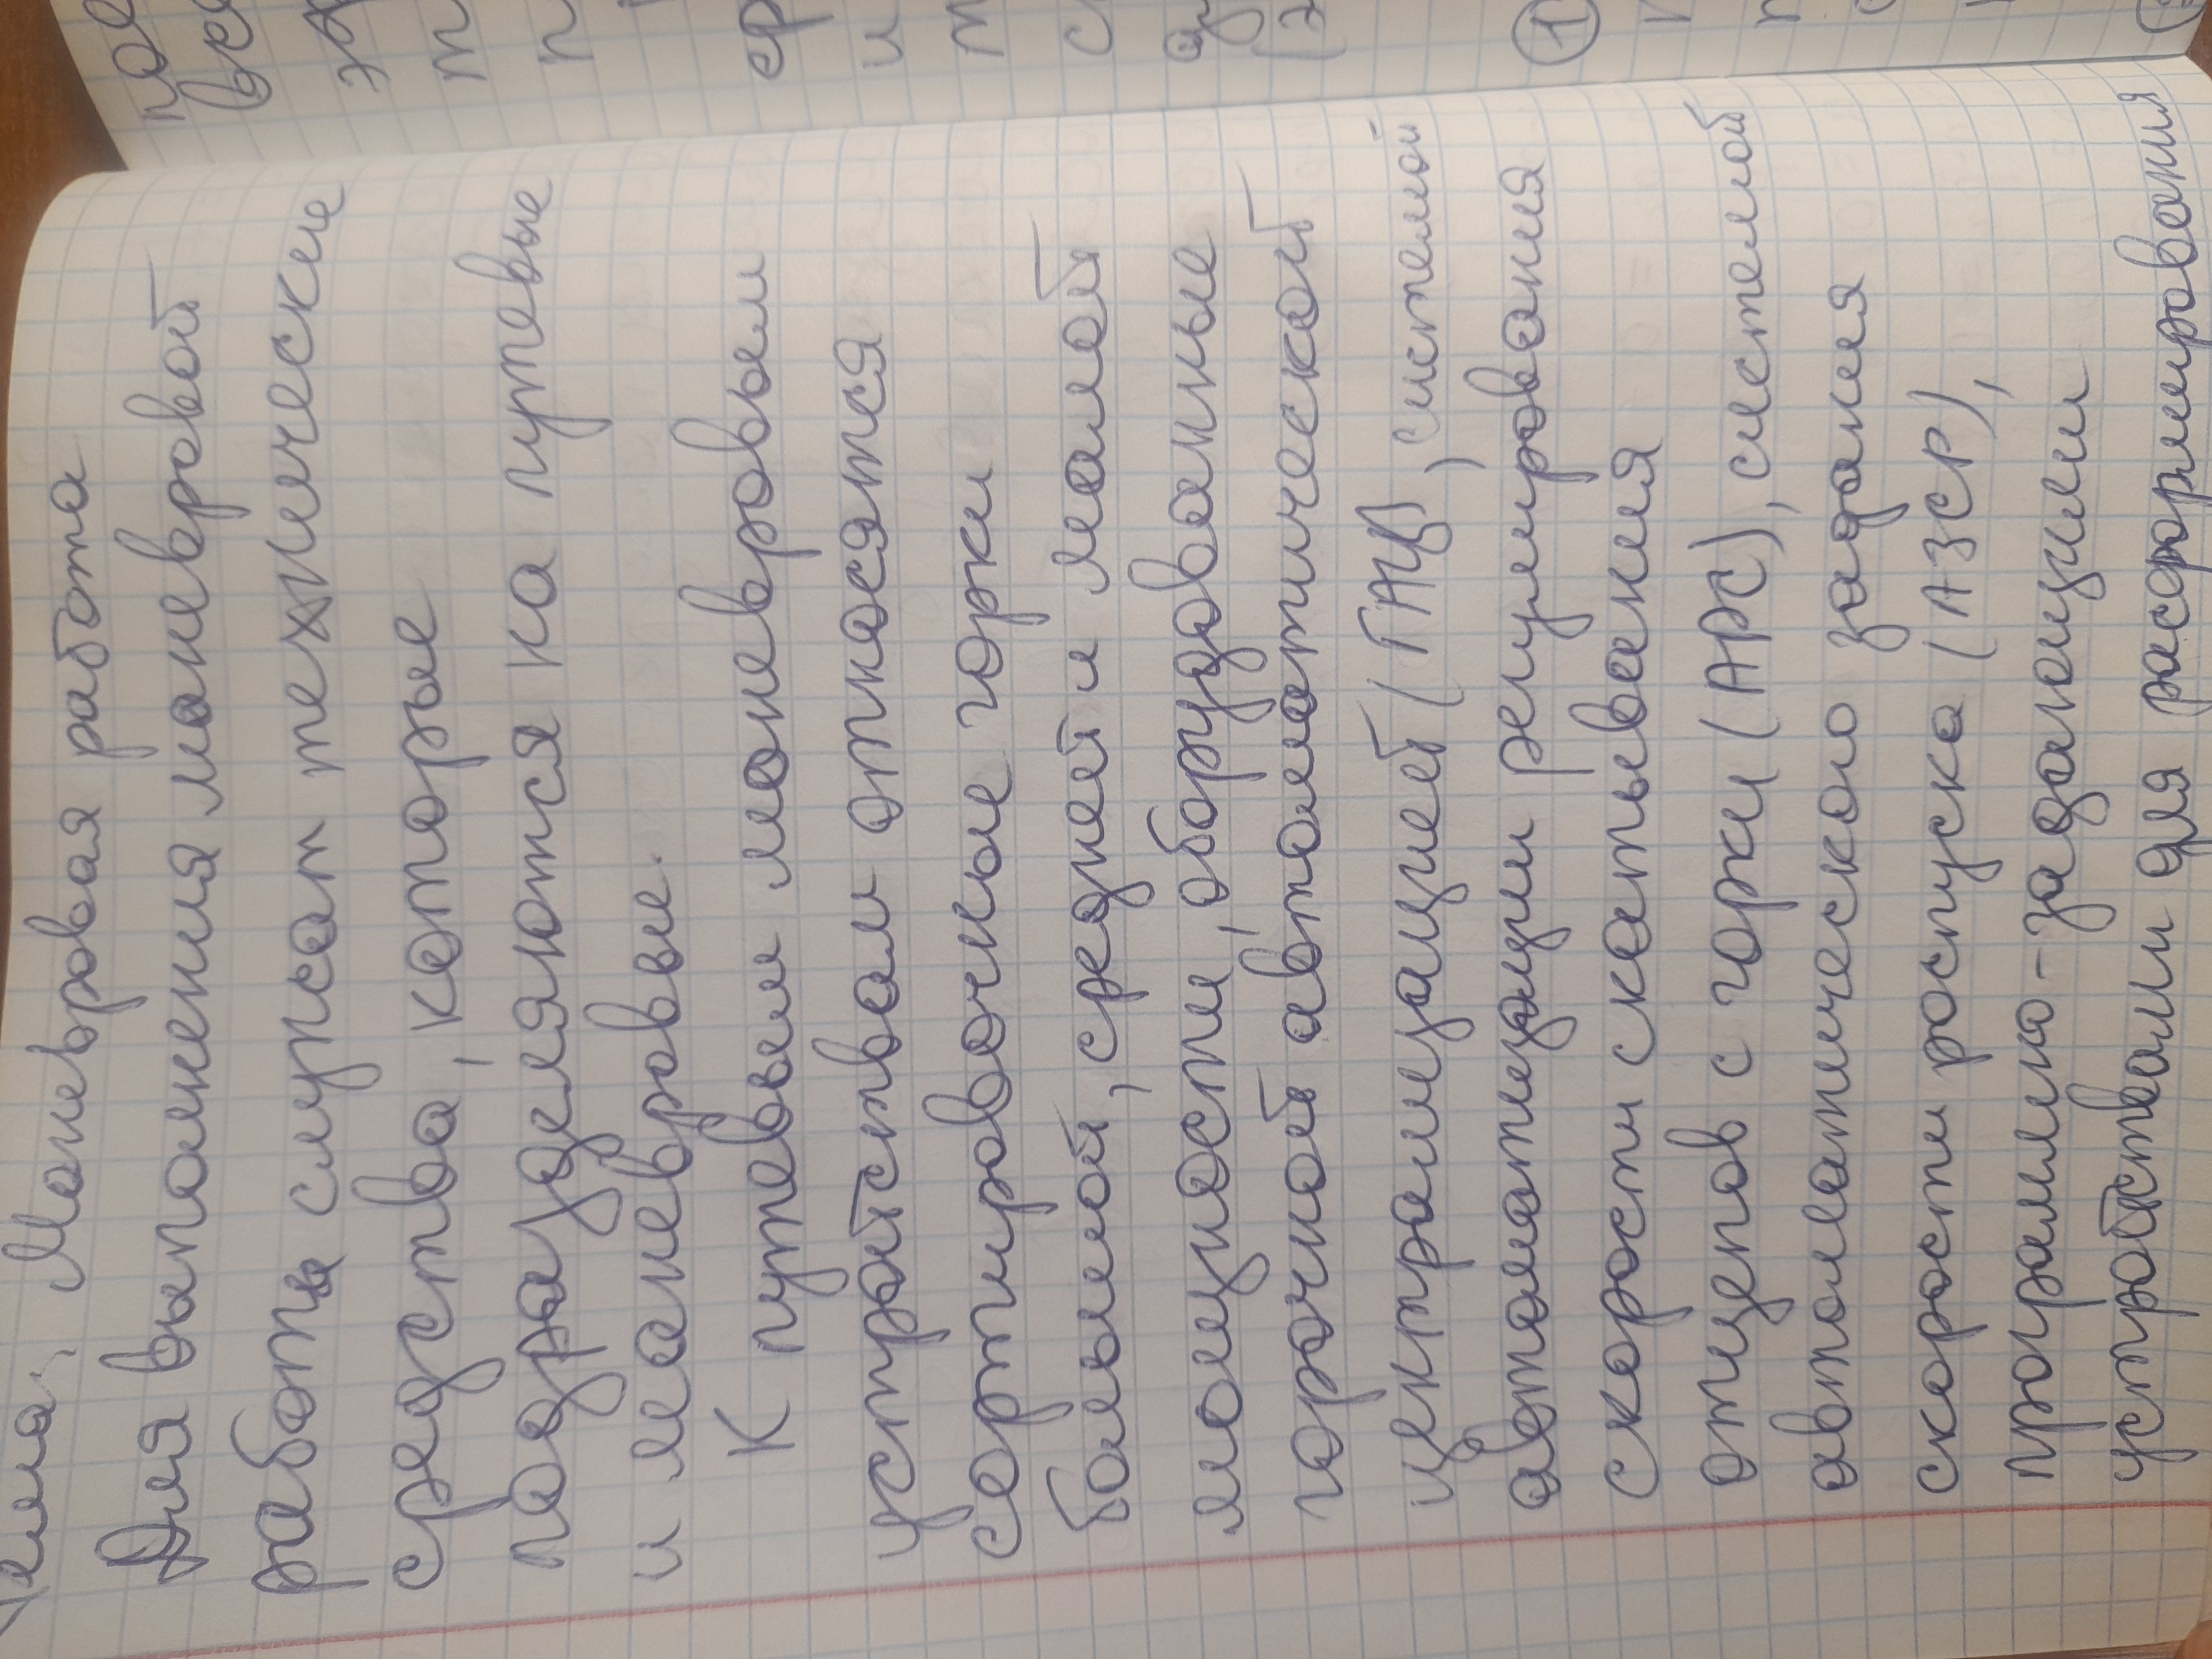 Тема: Маневровая работа
Для выполнения маневровой
работы служат технические
средства, которые
подразделяются на путевые
и маневровые.
К путевым маневровым
устройствам относятся
сортировочные горки
большой, средней и малой
мощности, оборудованные
горочной автоматической
централизацией (ГАЦ), системой
автоматизации регулирования
скорости скатывания
отцепов с горки (АРС), системой
автоматического задания
скорости роспуска (АЗСР),
програмно-задающими
устройствами для расформирования